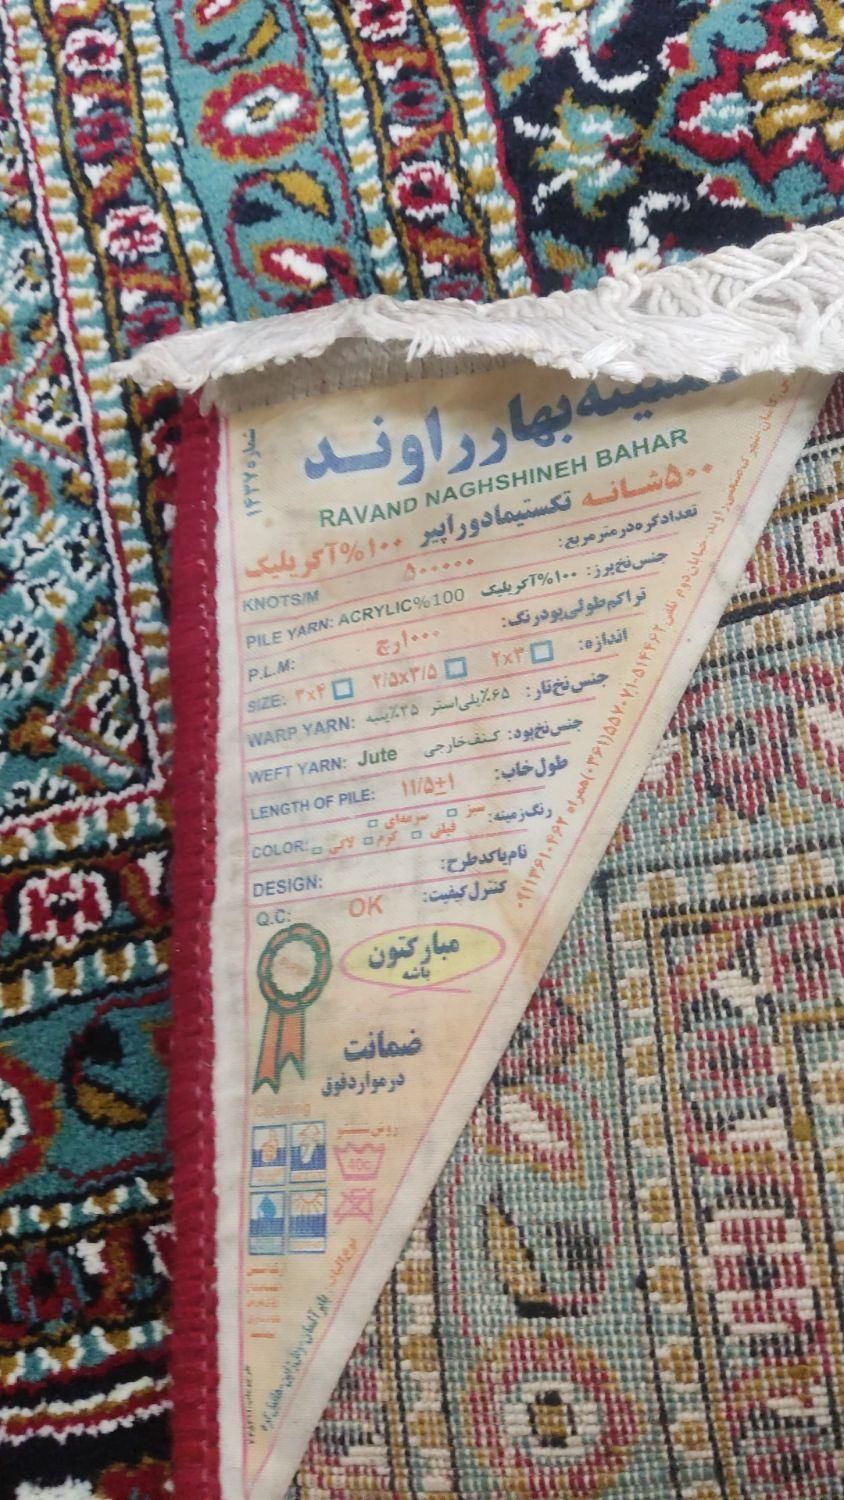 نقشینه بهار راوند
شماره ۱۴۳۷
RAVAND NAGHSHINEH BAHAR
۵۰۰ شانه
تکستیما دوراپیر ۱۰۰% آکریلیک
KNOTS/M ۵۰۰۰۰۰ تعداد گره در متر مربع:
PILE YARN: ACRYLIC%100 جنس نخ پرز: ۱۰۰% آکریلیک
P.L.M: ۱۰۰۰رج تراکم طولی پود رنگ:
SIZE: ۳x۴ ۲/۵x۳/۵ ۲x۳ اندازه:
WARP YARN: جنس نخ تار: ۶۵٪ پلی استر ۳۵٪ پنبه
WEFT YARN: Jute جنس نخ پود: کنف خارجی
LENGTH OF PILE: ۱۱/۵±۱ طول خاب:
COLOR: رنگ زمینه: سبز سرمه‌ای فیلی کرم لاکی
DESIGN: نام یا کد طرح:
Q.C: OK کنترل کیفیت:
مبارکتون
باشه
ضمانت
در موارد فوق
روش شستشو
40c